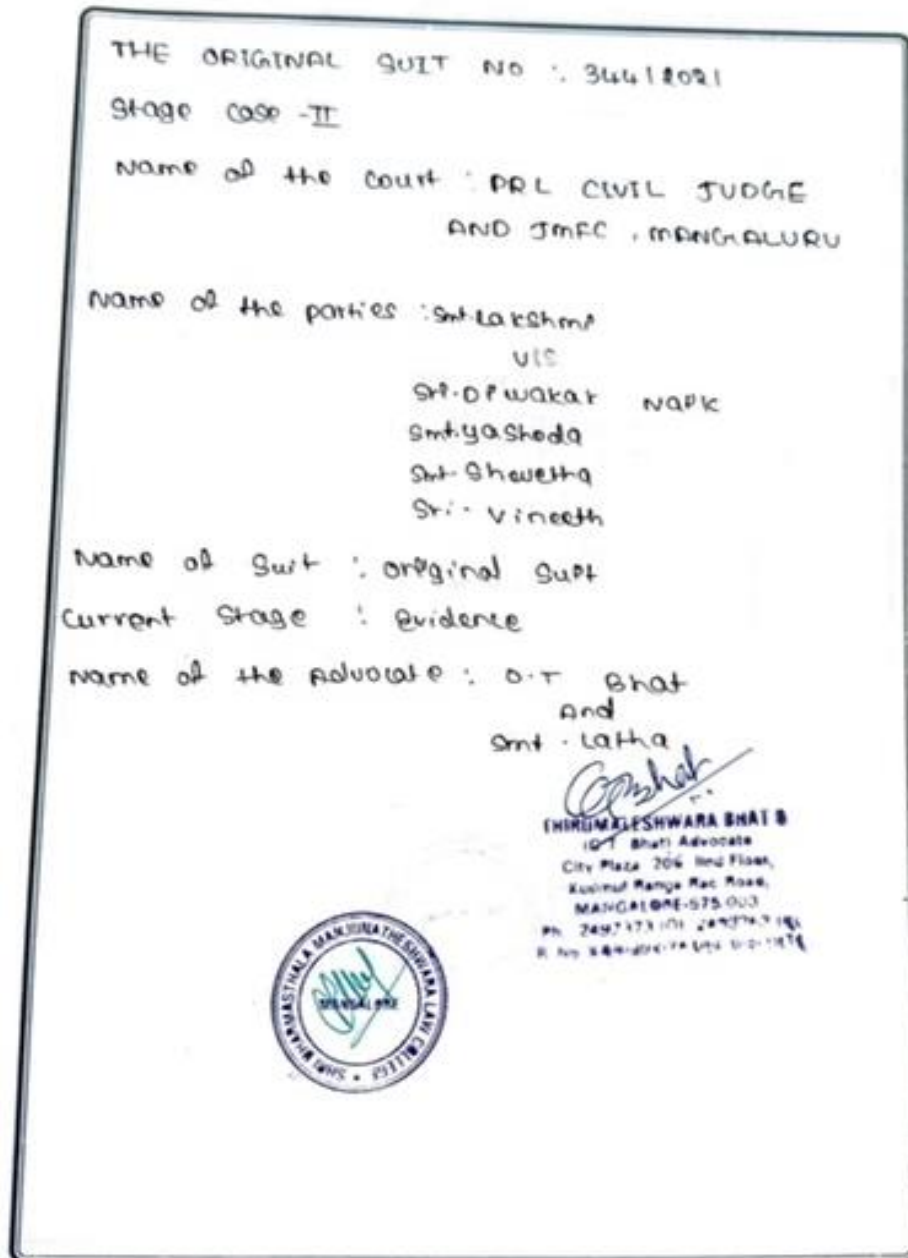 THE ORIGINAL SUIT NO : 344/2021
Stage case - II
Name of the court : PRL CIVIL JUDGE
AND JMFC , MANGALURU
Name of the parties : Smt. Lakshmi
V/S
Sri. Diwakar Naik
Smt. Yashoda
Smt. Shwetha
Sri. Vineeth
Name of Suit : original Suit
Current Stage : Evidence
Name of the Advocate : O.T Bhat
And
Smt. Latha
THIRUMALESHWARA BHAT B
Bhat) Advocate
City Plaza 206 IInd Floor,
MANGALORE-575 003
Ph.
SHRI DHARMASTHALA MANJUNATHESHWARA LAW COLLEGE
MANGALORE